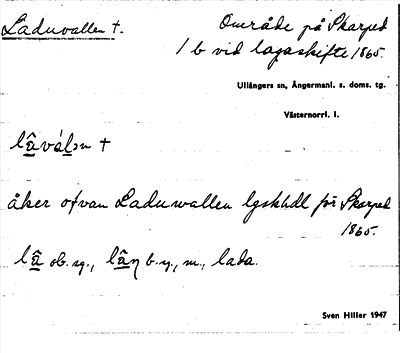 Laduvallen †.
Område på Skarped
1 b vid lagaskifte 1865.
Ullångers sn, Ångermanl. s. doms. tg.
Västernorrl. l.
åker ofvan Laduwallen lgskhdl för Skarped
1865.
lâ ob. sg., lân b. sg., m., lada.
Sven Hiller 1947